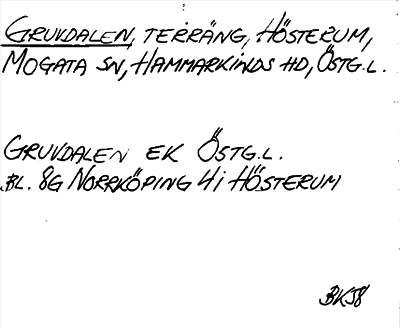 GRUVDALEN, TERRÄNG, HÖSTERUM,
MOGATA SN, HAMMARKINDS HD, ÖSTG.L.
GRUVDALEN EK ÖSTG.L.
BL. 8G NORRKÖPING 4i HÖSTERUM
BKS8